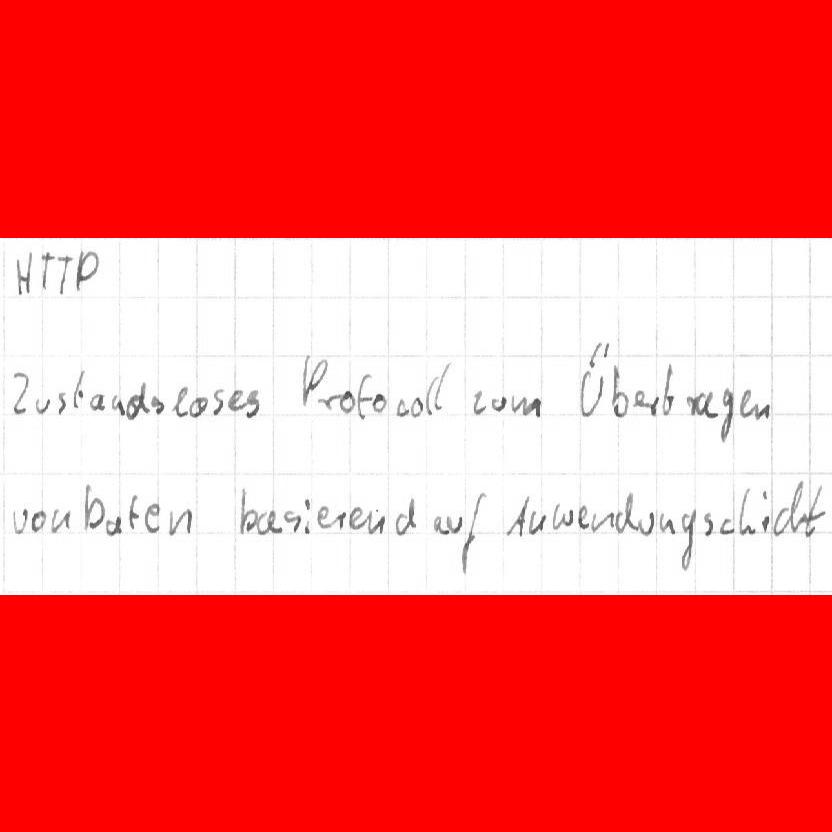 HTTP
Zustandsloses Protocoll zum Übertragen
von Daten basierend auf Anwendungschicht